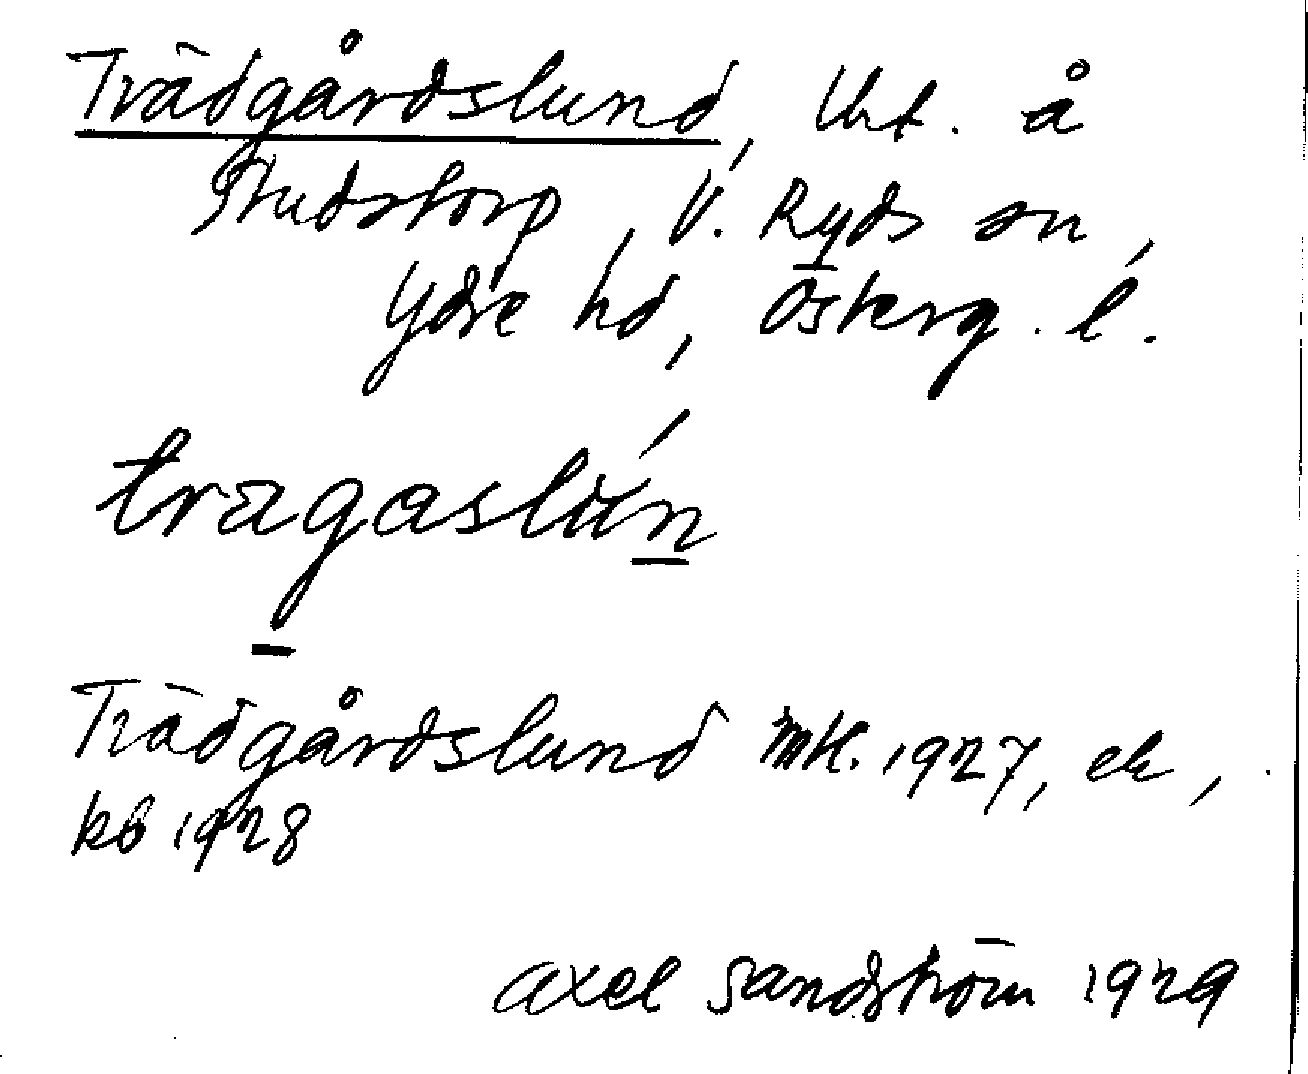 Trädgårdslund, lht. å
Studstorp, V. Ryds sn,
Ydre hd, Österg. l.
tragaslun
Trädgårdslund mk. 1927, ek,
kb 1928
Axel Sandström 1929